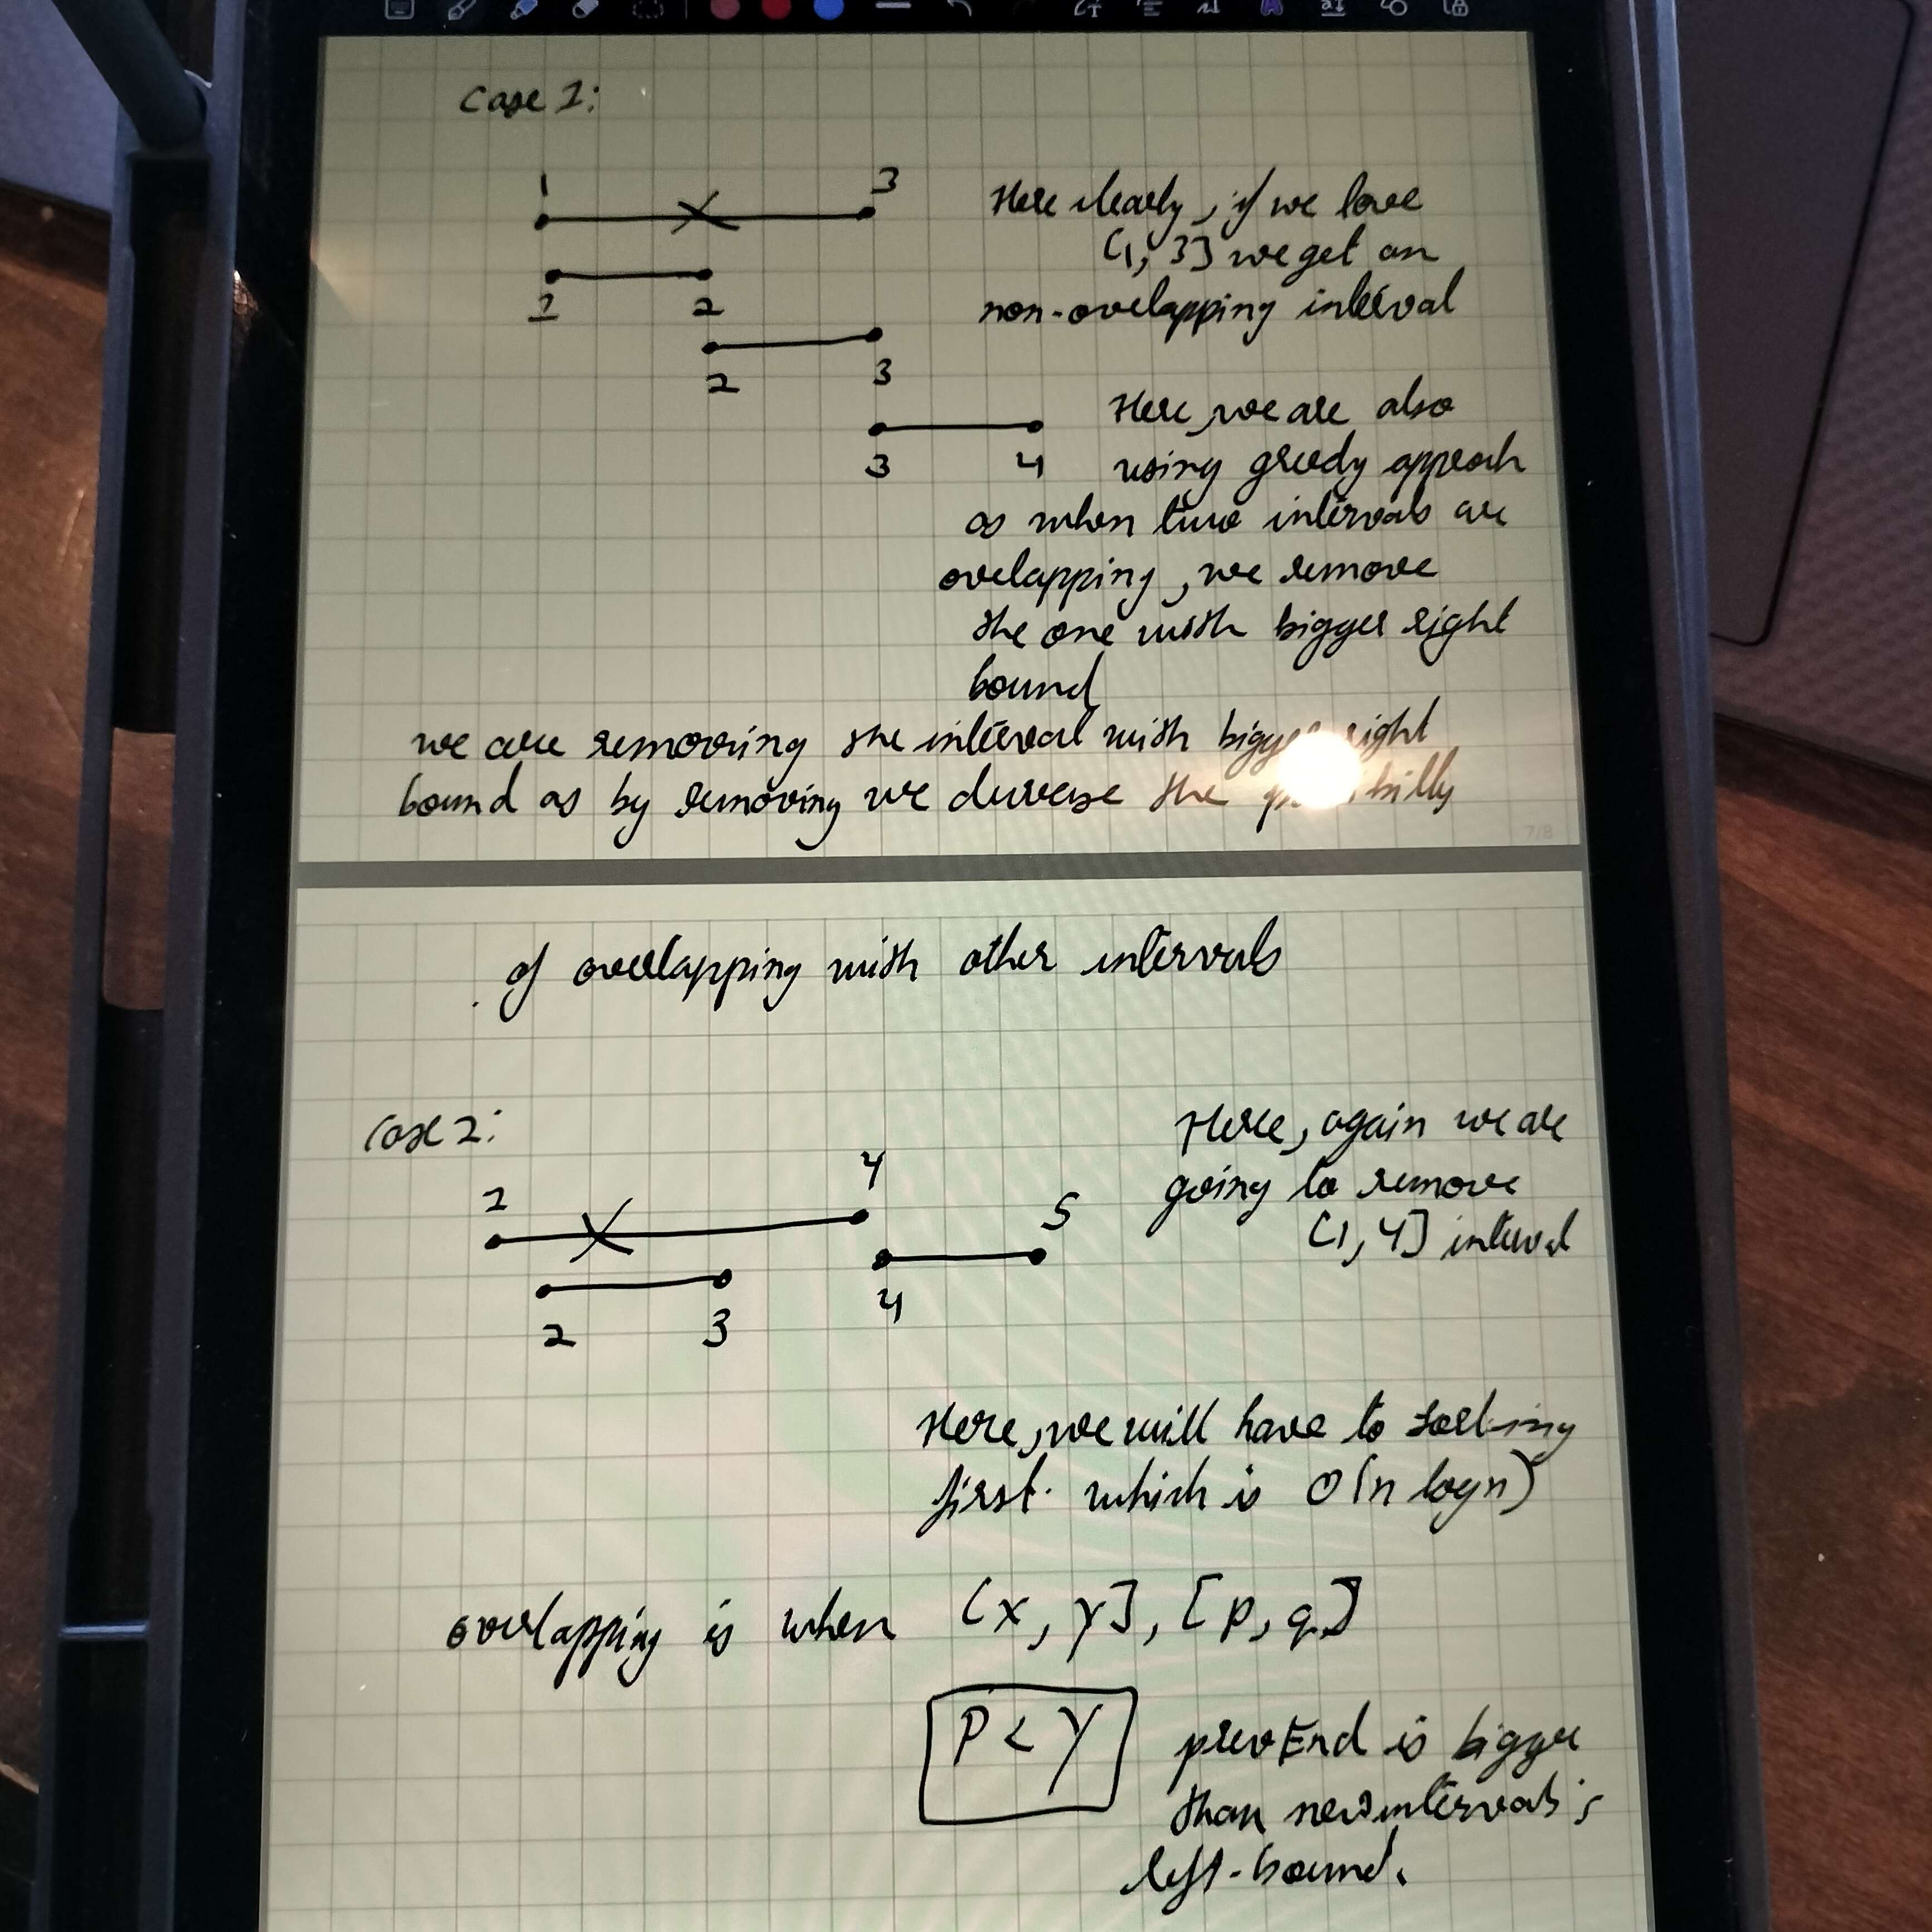 Case 1:
1 3
1 2
2 3
3 4
Here clearly, if we love
[1, 3] we get an
non-ovelapping interval
Here, we are also
using greedy approah
as when two intervals are
ovelapping, we remove
the one with bigger right
bound
we are removing the interval with bigger right
bound as by removing we decrease the
7/8
of overlapping with other intervals
Case 2:
1 4
2 3
4 5
Here, again we are
going to remove
[1, 4] interval
Here, we will have to sorting
first. which is O(n logn)
overlapping is when [x, y], [p, q]
P < Y
prevEnd is bigger
than newinterval's
left-bound.